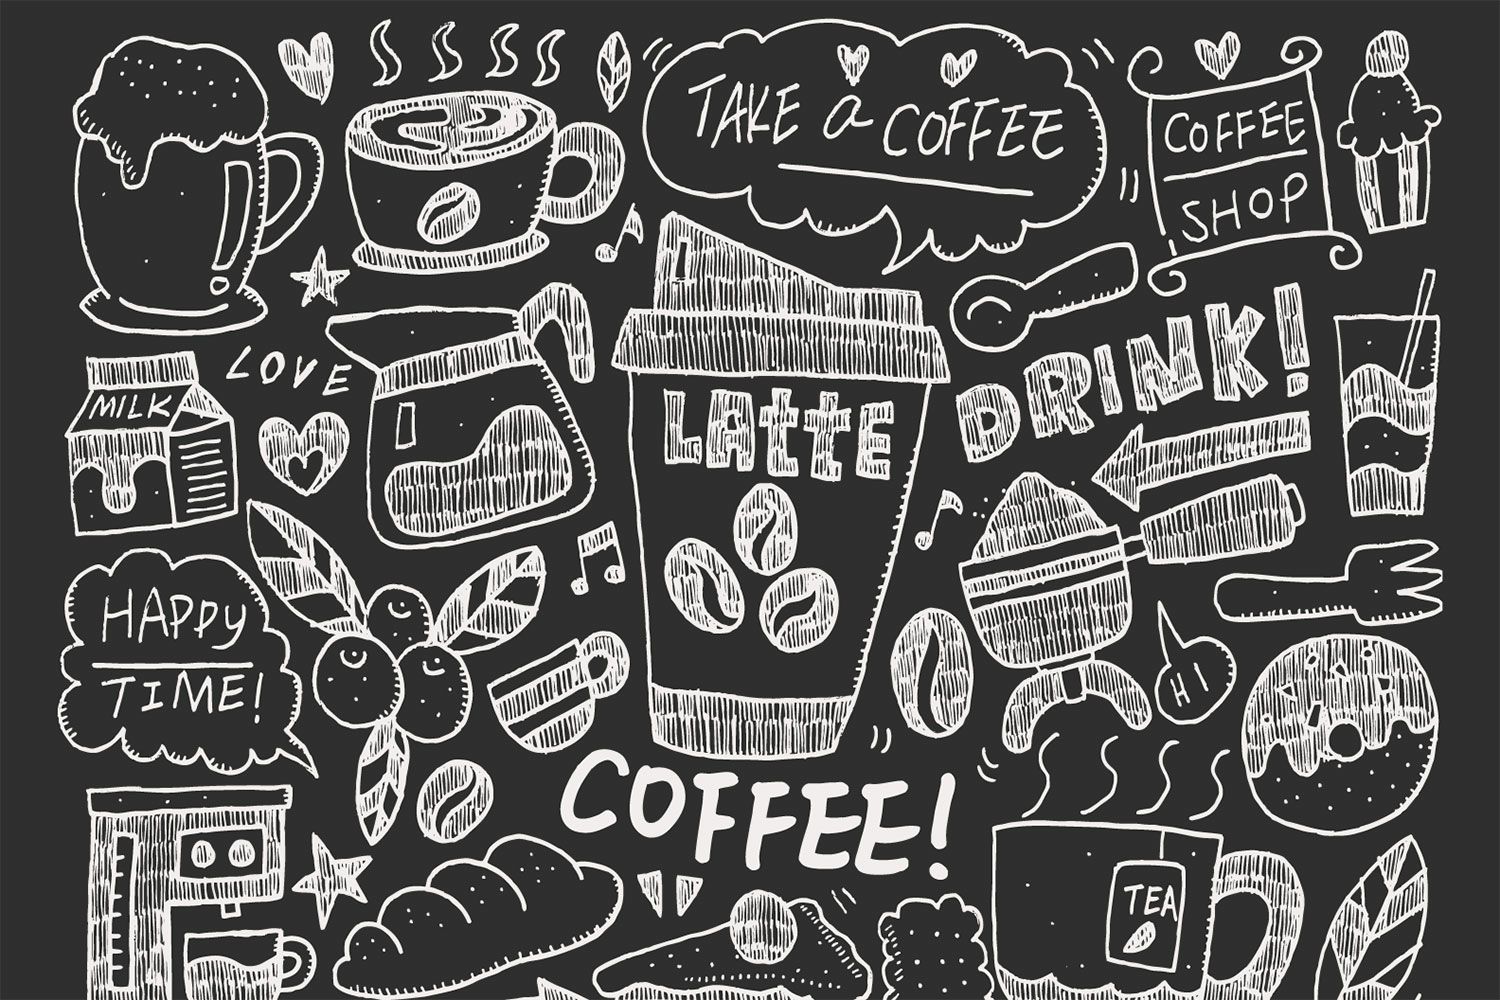 TAKE a COFFEE
COFFEE
SHOP
LOVE
MILK
LAttE
DRINK!
HAPPy
TIME!
HI
COFFEE!
TEA